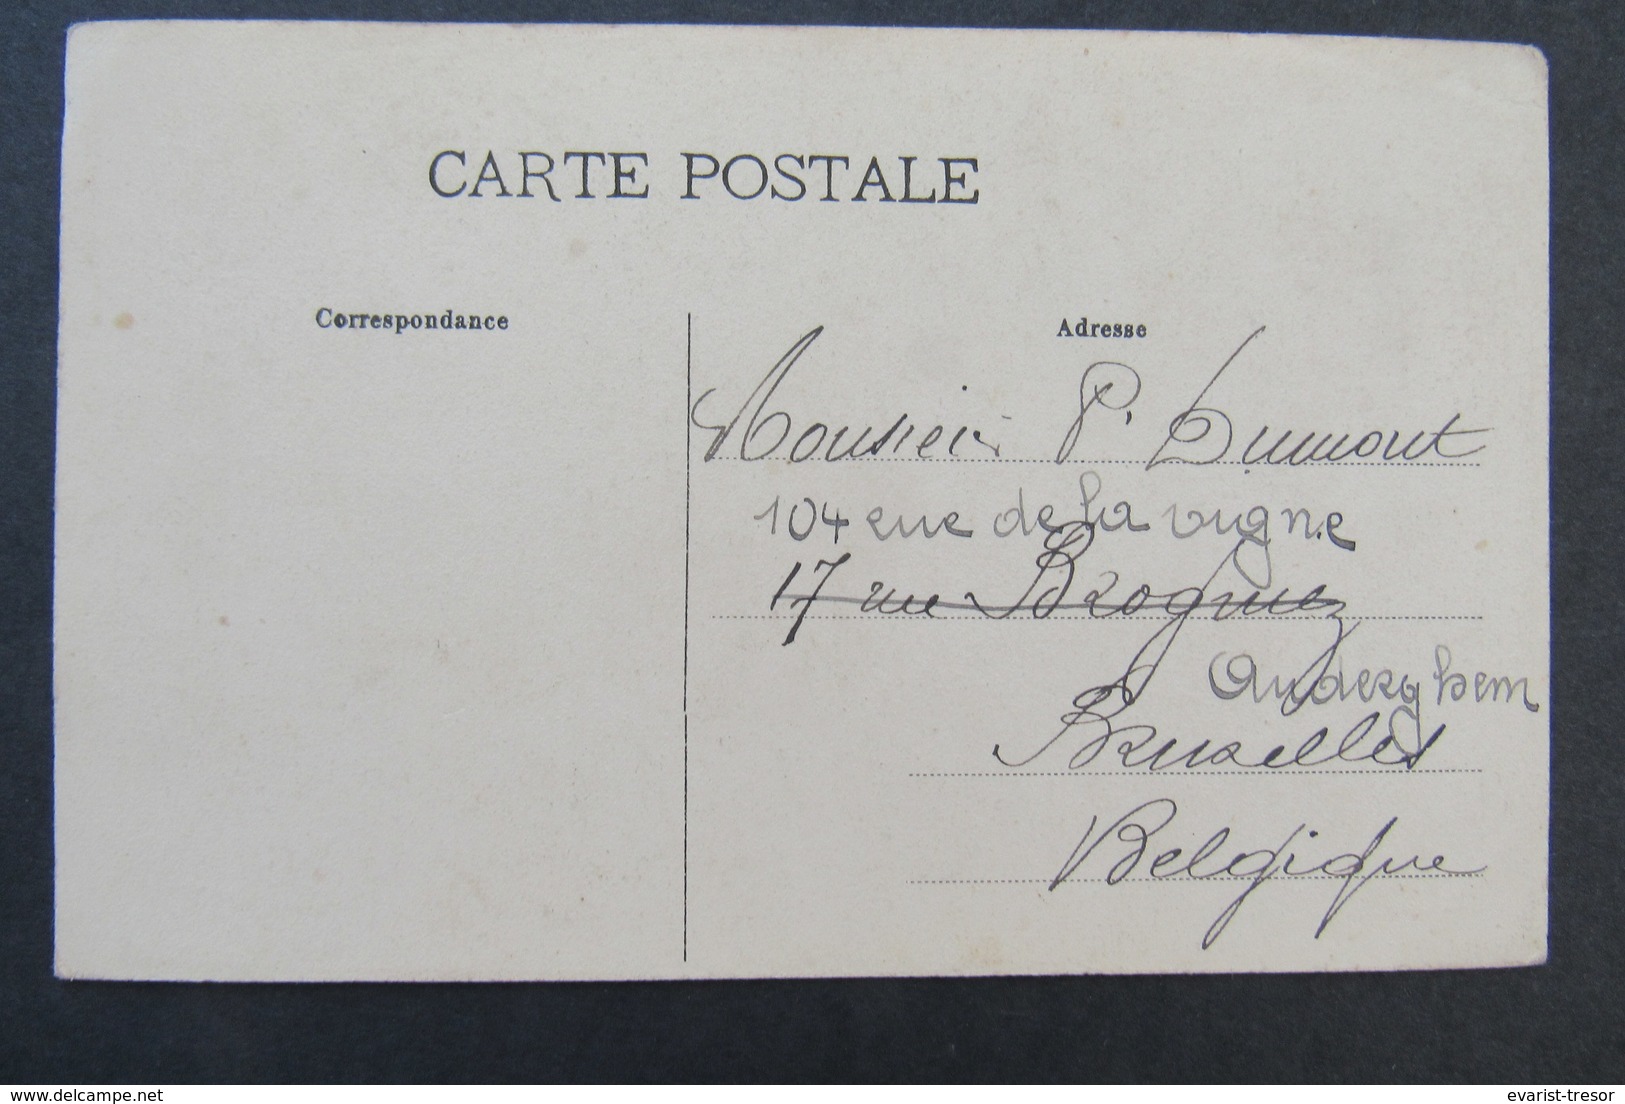 CARTE POSTALE
Correspondance
Adresse
Monsieur P. Dumont
104 rue de la vigne
17 rue Brogniez
Auderghem
Bruxelles
Belgique
delcampe.net
evarist-tresor